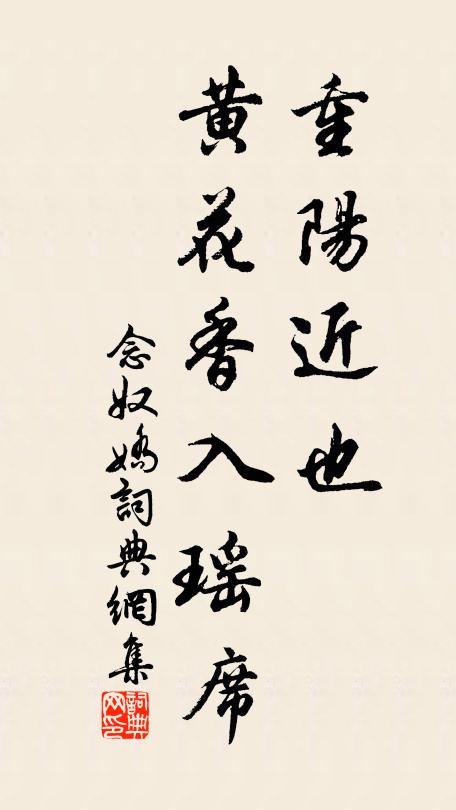 重陽近也
黃花香入瑶席
念奴嬌詞典網集
詞典网印